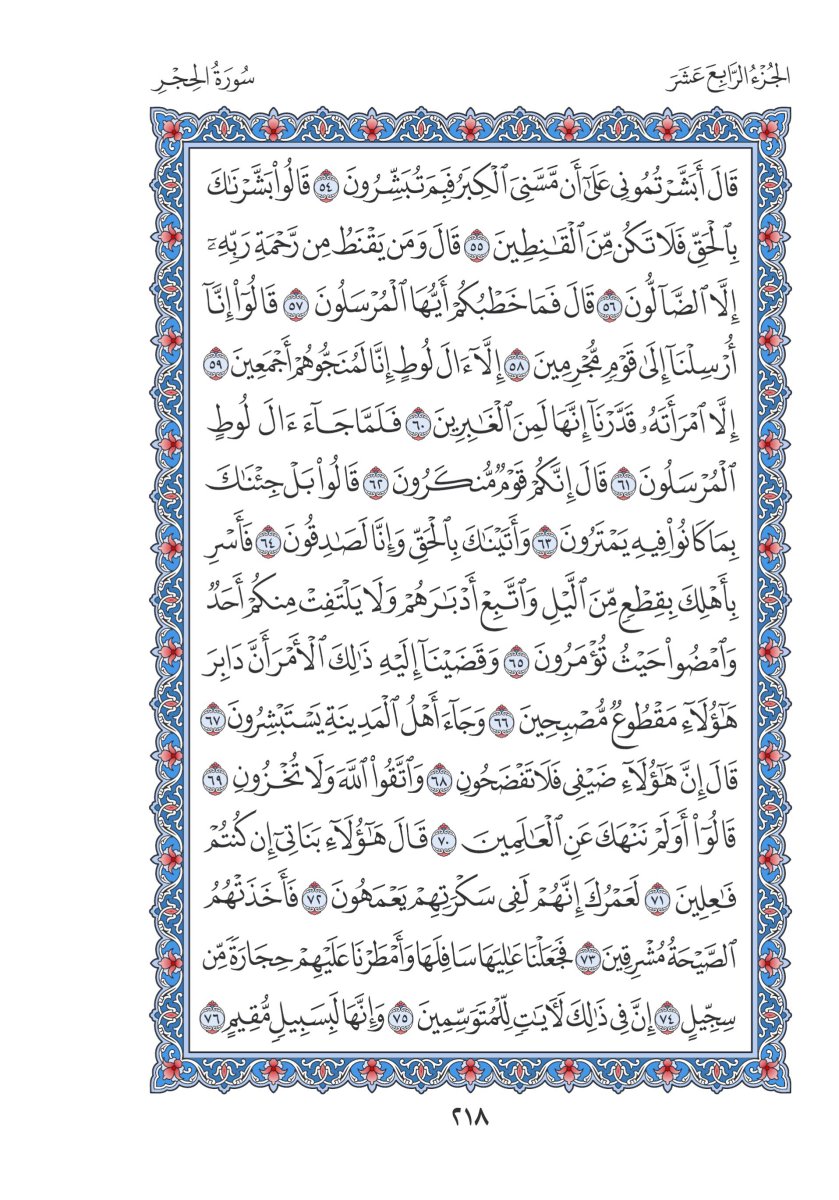 الجُزْءُ الرَّابِعَ عَشَرَ
سُورَةُ الحِجْرِ
قَالَ أَبَشَّرْتُمُونِي عَلَىٰٓ أَن مَّسَّنِيَ ٱلْكِبَرُ فَبِمَ تُبَشِّرُونَ ٥٤ قَالُوا۟ بَشَّرْنَٰكَ
بِٱلْحَقِّ فَلَا تَكُن مِّنَ ٱلْقَٰنِطِينَ ٥٥ قَالَ وَمَن يَقْنَطُ مِن رَّحْمَةِ رَبِّهِۦٓ
إِلَّا ٱلضَّآلُّونَ ٥٦ قَالَ فَمَا خَطْبُكُمْ أَيُّهَا ٱلْمُرْسَلُونَ ٥٧ قَالُوٓا۟ إِنَّآ
أُرْسِلْنَآ إِلَىٰ قَوْمٍ مُّجْرِمِينَ ٥٨ إِلَّآ ءَالَ لُوطٍ إِنَّا لَمُنَجُّوهُمْ أَجْمَعِينَ ٥٩
إِلَّا ٱمْرَأَتَهُۥ قَدَّرْنَآ إِنَّهَا لَمِنَ ٱلْغَٰبِرِينَ ٦٠ فَلَمَّا جَآءَ ءَالَ لُوطٍ
ٱلْمُرْسَلُونَ ٦١ قَالَ إِنَّكُمْ قَوْمٌ مُّنكَرُونَ ٦٢ قَالُوا۟ بَلْ جِئْنَٰكَ
بِمَا كَانُوا۟ فِيهِ يَمْتَرُونَ ٦٣ وَأَتَيْنَٰكَ بِٱلْحَقِّ وَإِنَّا لَصَٰدِقُونَ ٦٤ فَأَسْرِ
بِأَهْلِكَ بِقِطْعٍ مِّنَ ٱلَّيْلِ وَٱتَّبِعْ أَدْبَٰرَهُمْ وَلَا يَلْتَفِتْ مِنكُمْ أَحَدٌ
وَٱمْضُوا۟ حَيْثُ تُؤْمَرُونَ ٦٥ وَقَضَيْنَآ إِلَيْهِ ذَٰلِكَ ٱلْأَمْرَ أَنَّ دَابِرَ
هَٰٓؤُلَآءِ مَقْطُوعٌ مُّصْبِحِينَ ٦٦ وَجَآءَ أَهْلُ ٱلْمَدِينَةِ يَسْتَبْشِرُونَ ٦٧
قَالَ إِنَّ هَٰٓؤُلَآءِ ضَيْفِي فَلَا تَفْضَحُونِ ٦٨ وَٱتَّقُوا۟ ٱللَّهَ وَلَا تُخْزُونِ ٦٩
قَالُوٓا۟ أَوَلَمْ نَنْهَكَ عَنِ ٱلْعَٰلَمِينَ ٧٠ قَالَ هَٰٓؤُلَآءِ بَنَاتِيٓ إِن كُنتُمْ
فَٰعِلِينَ ٧١ لَعَمْرُكَ إِنَّهُمْ لَفِي سَكْرَتِهِمْ يَعْمَهُونَ ٧٢ فَأَخَذَتْهُمُ
ٱلصَّيْحَةُ مُشْرِقِينَ ٧٣ فَجَعَلْنَا عَٰلِيَهَا سَافِلَهَا وَأَمْطَرْنَا عَلَيْهِمْ حِجَارَةً مِّن
سِجِّيلٍ ٧٤ إِنَّ فِي ذَٰلِكَ لَءَايَٰتٍ لِّلْمُتَوَسِّمِينَ ٧٥ وَإِنَّهَا لَبِسَبِيلٍ مُّقِيمٍ ٧٦
٢١٨